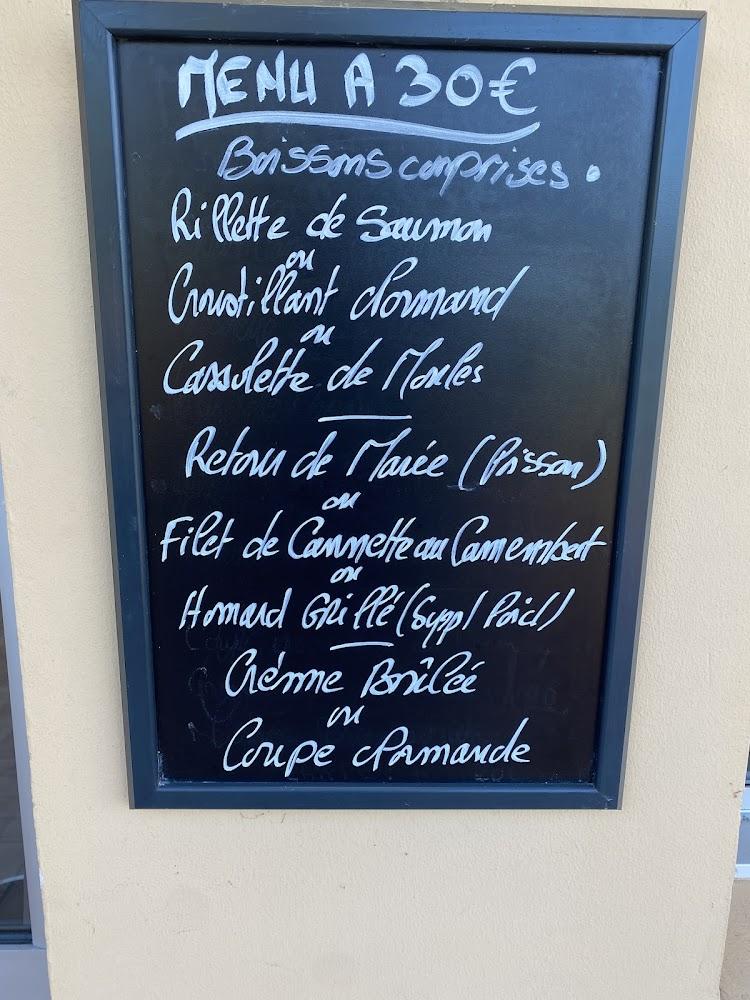 MENU A 30€
Boissons comprises.
Rillette de Saumon
ou
Croustillant Normand
ou
Cassolette de Moules
Retour de Marée (Poisson)
ou
Filet de Cannette au Camembert
ou
Homard Grillé (Suppl Poid)
Crème Brûlée
ou
Coupe Normande